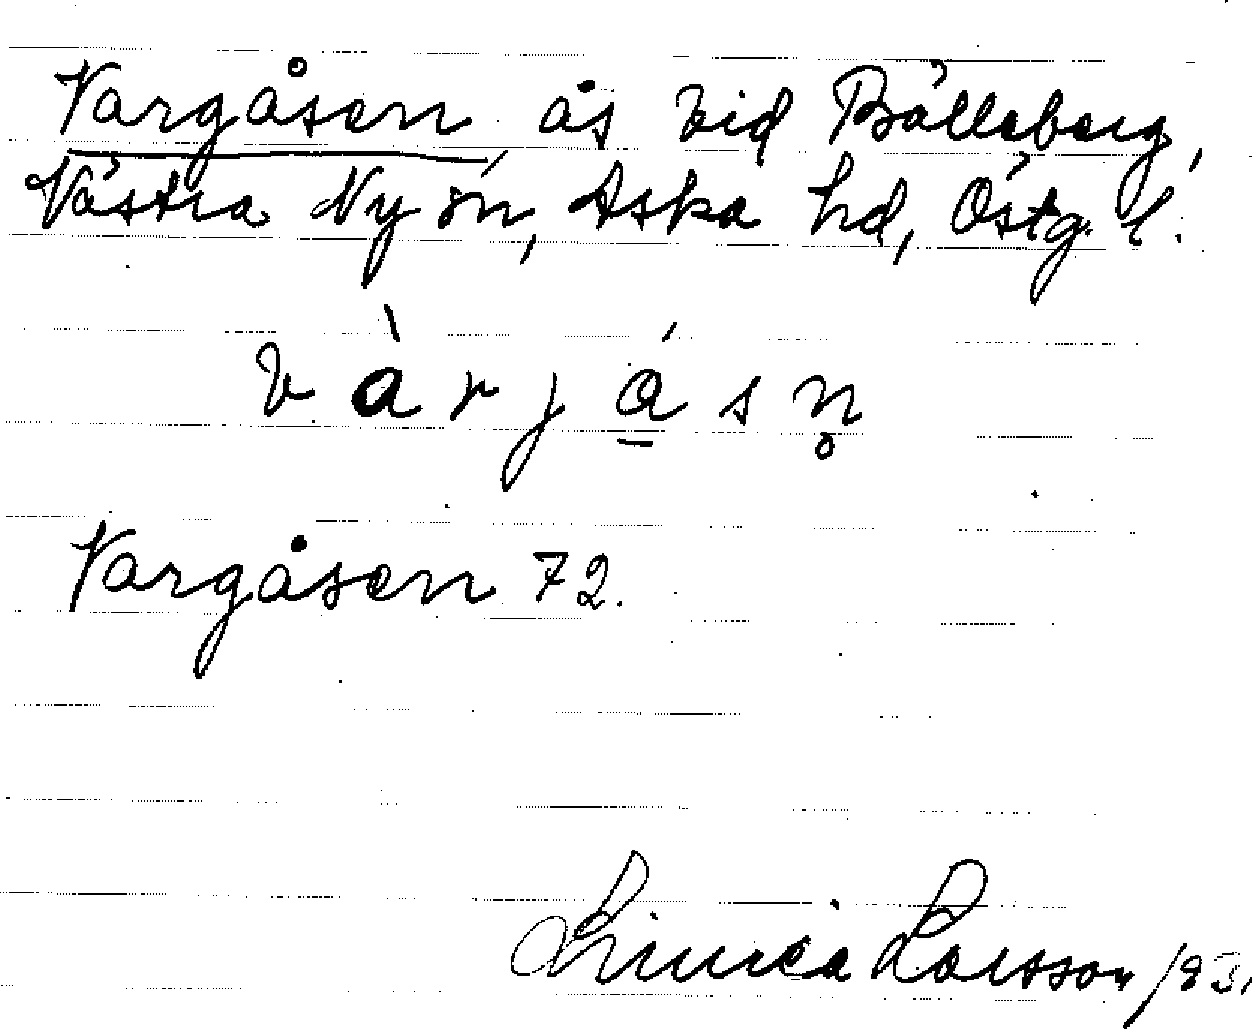 Vargåsen ås vid Bålleberg,
Västra Ny sn, Aska hd, Östg. l.
vàrjásn̥
Vargåsen 72.
Linnéa Larsson